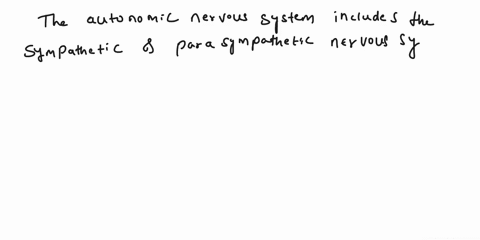 The autonomic nervous system includes the
sympathetic & parasympathetic nervous sy